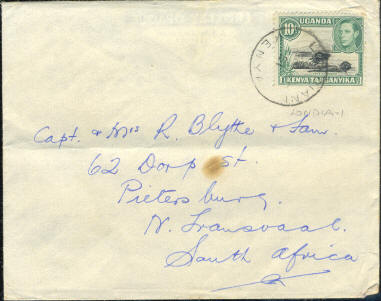 UGANDA
10c
KENYA TANGANYIKA
KENYA
LONDIANI
Capt. & Mrs R. Blythe & Fam.
62 Dorp st.
Pietersburg.
N. Transvaal.
South Africa